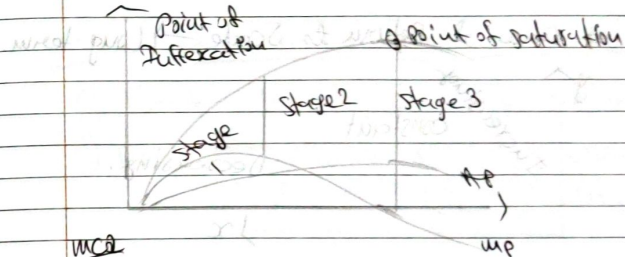 Point of
Inflexation
Point of saturation
Stage 2
Stage 3
Stage
1
AP
MCQ
MP